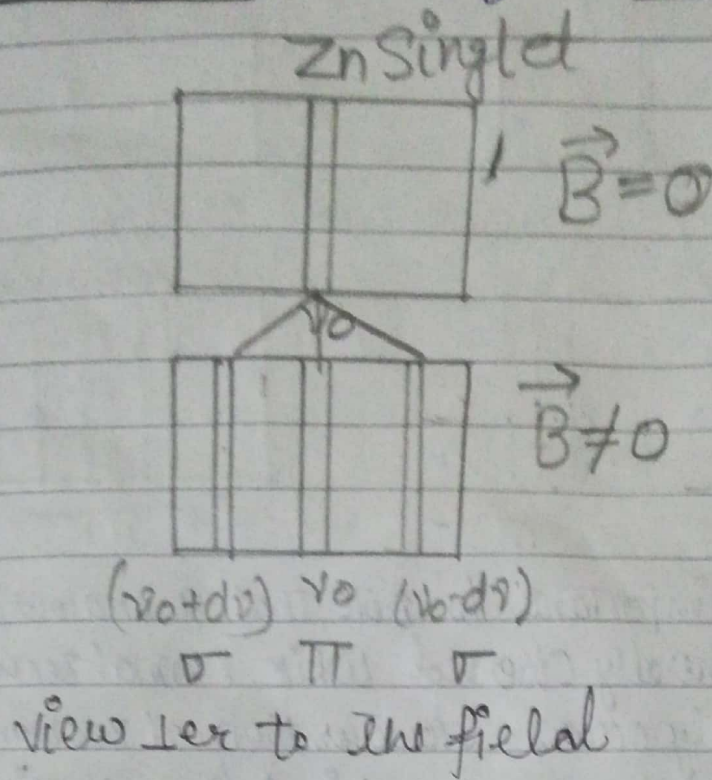 Zn Singlet
B⃗ = 0
ν0
B⃗ ≠ 0
(ν0+dν) ν0 (ν0-dν)
σ π σ
view ⊥er to the field